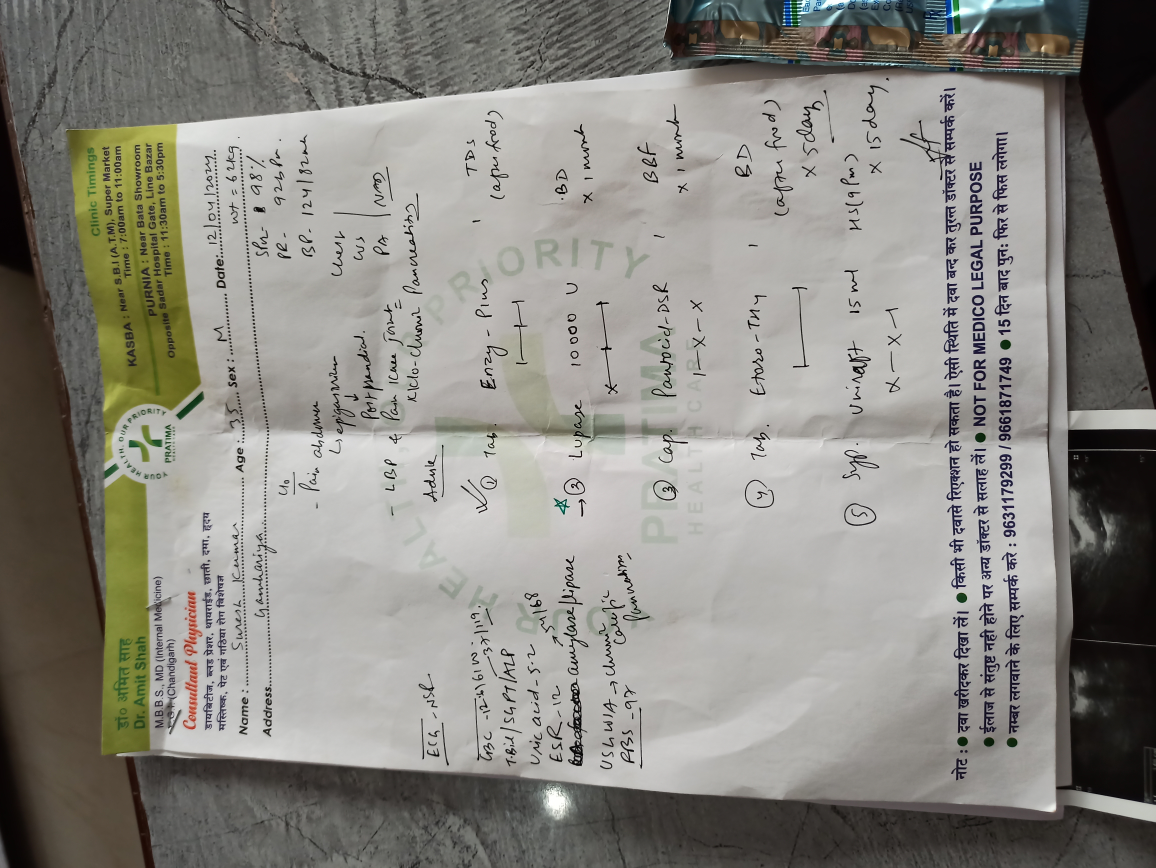 डा० अमित साह
Dr. Amit Shah
M.B.B.S., MD (Internal Medicine)
(Chandigarh)
Consultant Physician
डायबिटीज, ब्लड प्रेशर, थायराईड, छाती, दमा, हृदय
मस्तिष्क, पेट एवं गठिया रोग विशेषज्ञ
YOUR HEALTH, OUR PRIORITY
PRATIMA
Clinic Timings
KASBA : Near S.B.I (A.T.M), Super Market
Time : 7:00am to 11:00am
PURNIA : Near Bata Showroom
Opposite Sadar Hospital Gate, Line Bazar
Time : 11:30am to 5:30pm
Name : Suresh Kumar Age : 35 Sex : M Date: 12/04/2024
Address Gamhariya wt = 62kg
SPO2- 98%
PR- 92bpm.
BP- 124/82
Chest
CVS
PA NAD
C/o
- Pain abdomen
↳ epigastrium
↓
Postprandial.
- LBP & Pain knee joint
K/c/o - chronic Pancreatitis
Advice
ECG - NSR
T.Bil/SGPT/ALP
Uric acid - 5.2
ESR - 12
amylase/lipase
USG W/A → chronic calcific pancreatitis
RBS - 97
① Tab. Enzy-Plus 1 TDS
(after food)
→ ② Lipase 10000 U BD
x 1 month
③ Cap. Pantocid-DSR 1 BBF
1-x-x x 1 month
④ Tab. Etoro-Thy 1 BD
(after food)
x 5 days
⑤ Syp. 15 ml HS (9pm)
x-x-1 x 15 day.
YOUR HEALTH OUR PRIORITY
PRATIMA
HEALTH CARE
नोट : ● दवा खरीदकर दिखा लें। ● किसी भी दवासे रिएक्शन हो सकता है। ऐसी स्थिति में दवा बन्द कर तुरन्त डॉक्टर से सम्पर्क करें।
● ईलाज से संतुष्ट नही होने पर अन्य डॉक्टर से सलाह लें। ● NOT FOR MEDICO LEGAL PURPOSE
● नम्बर लगवाने के लिए सम्पर्क करे : 9631179299 / 9661871749 ● 15 दिन बाद पुनः फिर से फिस लगेगा।